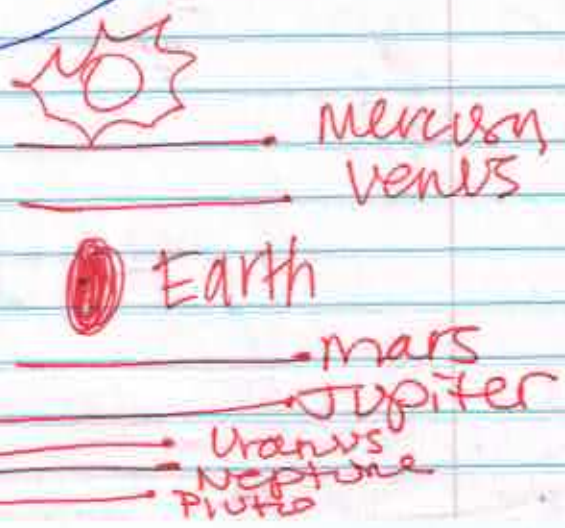 Mercury
Venus
Earth
Mars
Jupiter
Uranus
Neptune
Plutio